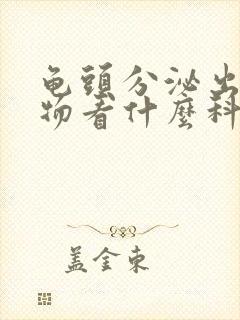 龟頭分泌出
物看什麼科
盖金東